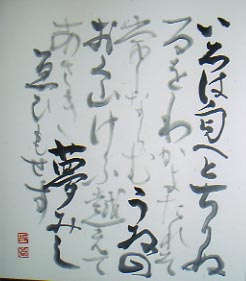 いろは匂へとちりぬ
るをわかよたれそ
常ならむうゐの
おく山けふ越えて
あさき夢みし
ゑひもせす